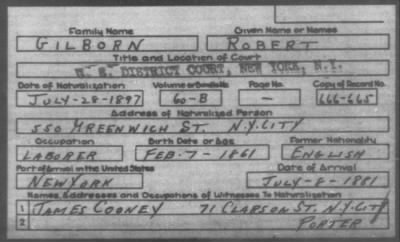 Family Name Given Name or Names
GILBORN ROBERT
Title and Location of Court
U. S. DISTRICT COURT, NEW YORK, N.Y.
Date of Naturalization Volume or Bundle No. Page No. Copy of Record No.
JULY-28-1897 60-B — 666-665
Address of Naturalized Person
550 GREENWICH ST. N.Y.CITY
Occupation Birth Date or Age Former Nationality
LABORER FEB-7-1861 ENGLISH
Port of Arrival in the United States Date of Arrival
NEW YORK JULY-8-1881
Names, Addresses and Occupations of Witnesses To Naturalization
1 JAMES COONEY 71 CLARSON ST. N.Y.CITY
2 PORTER